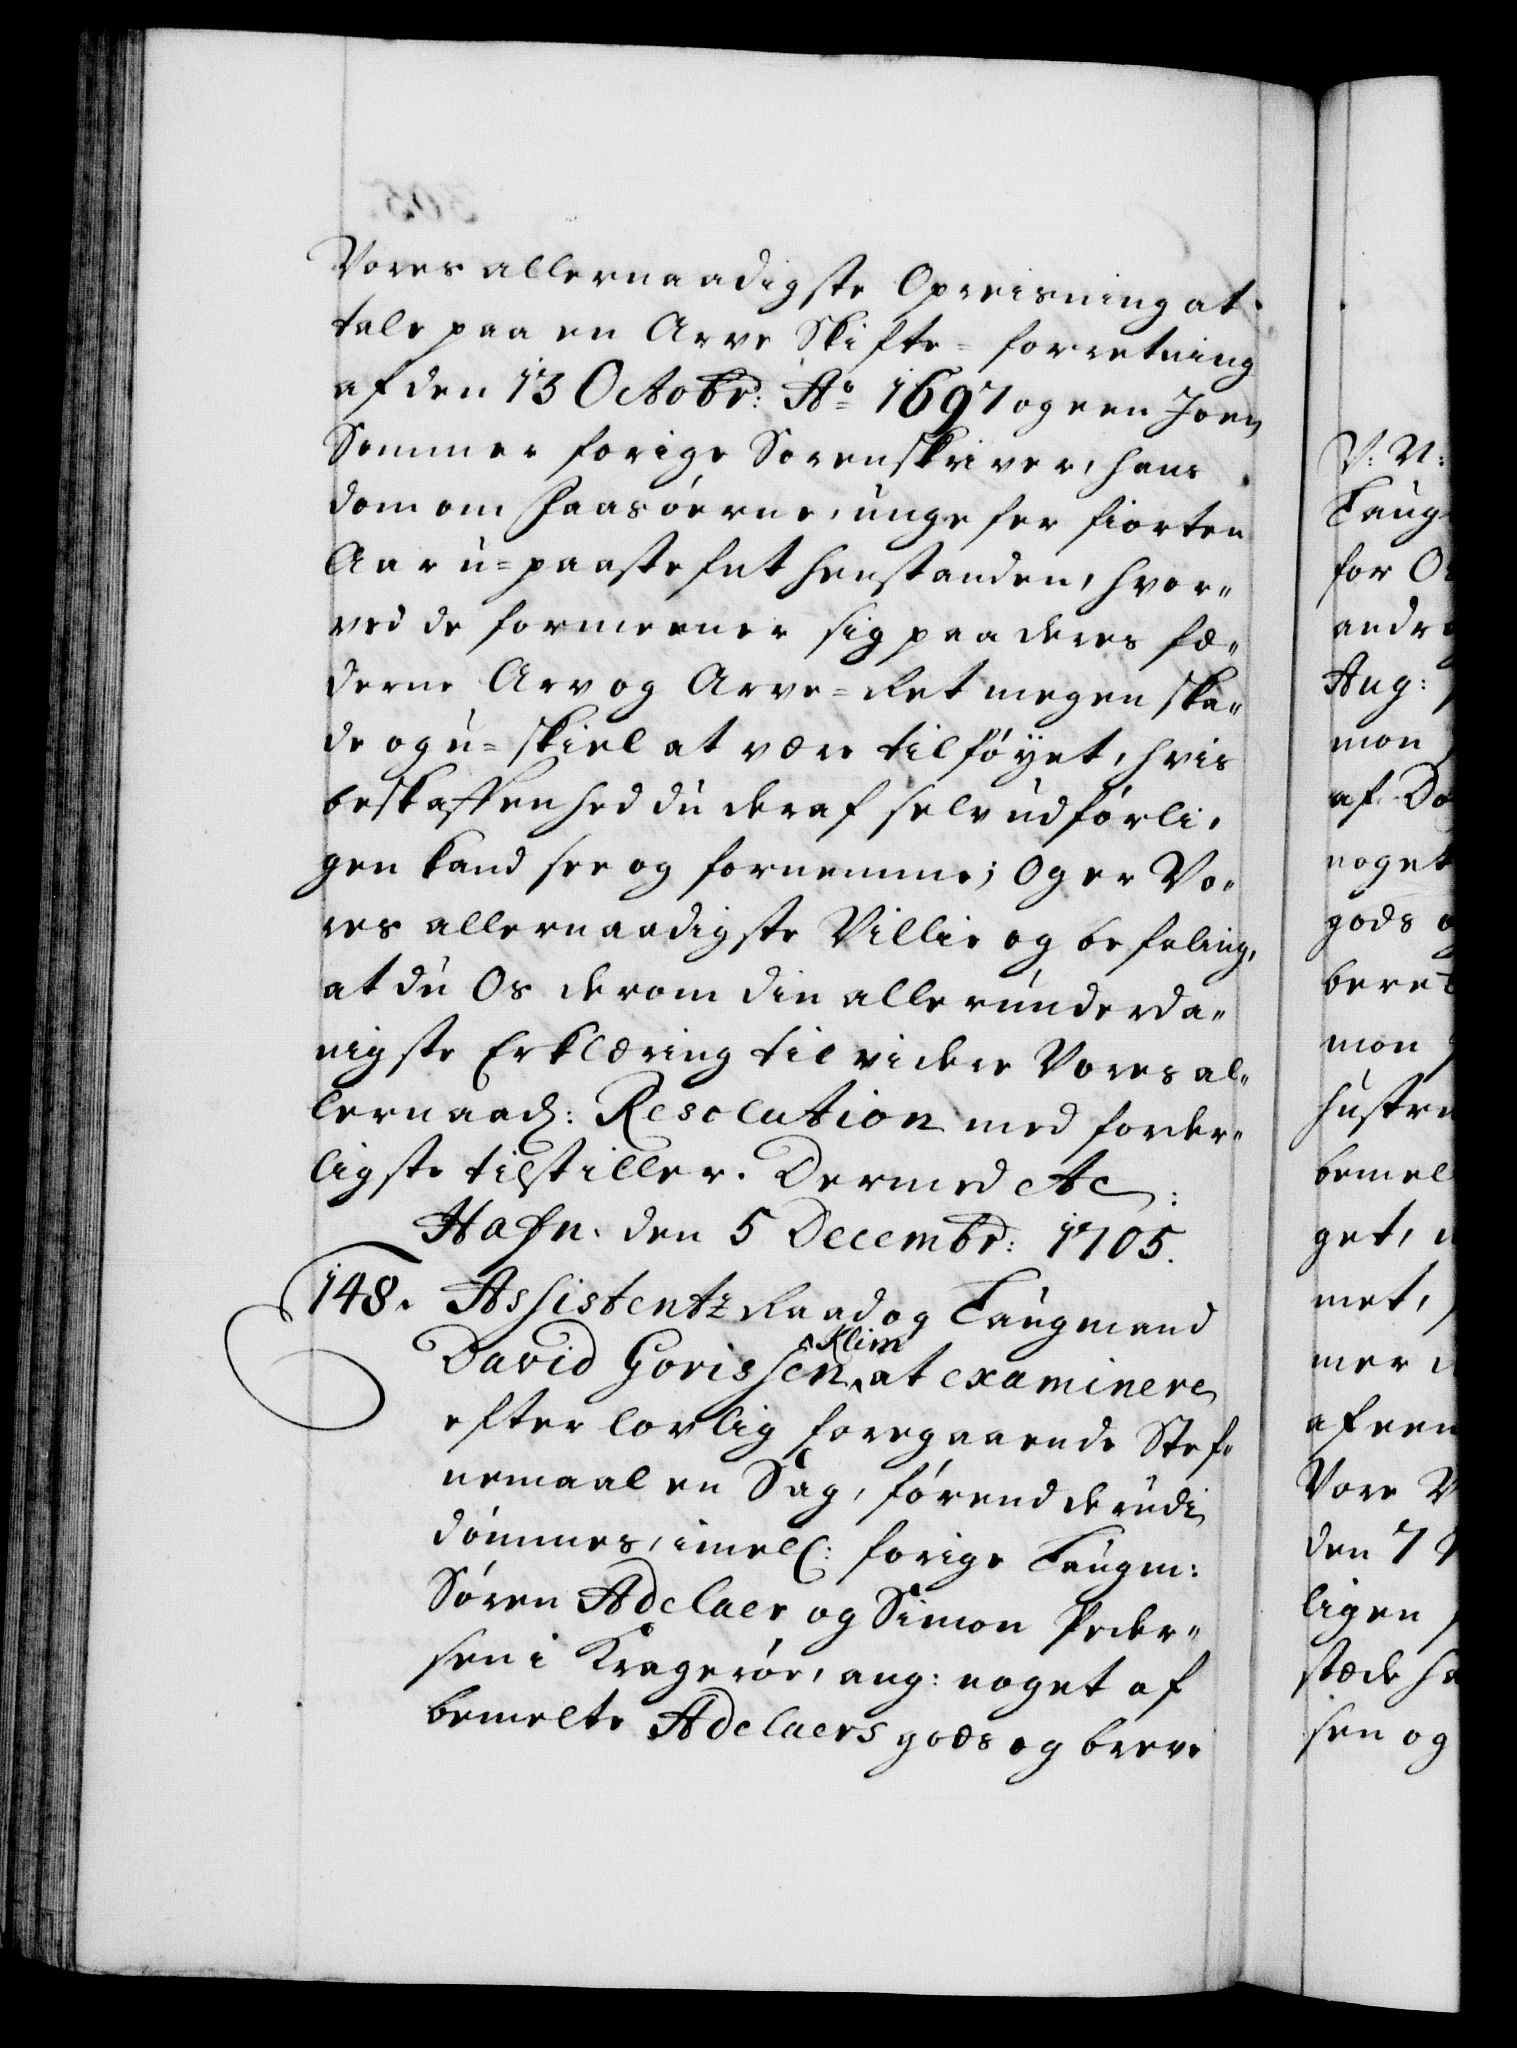 Vores allernaadigste Opreisning at
tale paa en Arve Skifte= forretning
af den 13 Octobr: Aō 1697 og een Joen
Sommer forige Sorenskriver, hans
dom om Haasöerne, ungefer fiorten
Aar u=paastefnt henstanden, hvor"
ved de formeener sig paa deres fæ"
derne Arv og Arve=Ret megen ska"
de og u=skiel at være tilföyet, hvis
beskaffenhed du deraf selv udförli,
gen kand see og fornemme; Og er Vo"
res allernaadigste Villie og befaling,
at du Os derom din allerunderda"
nigste Erklæring til videre Vores al"
lernaad: Resolution med forder"
ligste tilstiller. Dermed etc:
Hafn. den 5 Decembr: 1705.
148. Assistentz Raad og Laugmand
David Gorissen Klim at examinere
efter lovlig foregaaende Stef"
nemaal en Sag, förend derudi
dömmes, imell: forige Laugm:
Sören Adelaer og Simon Peder"
sen i Krageröe, ang: noget af
bemelte Adelaers gods og breve
V: V:
Laug
for O
andr
Aug:
mon
af Do
noget
gods
beret
mon
hustru
bemel
get,
met,
mer
af een
Vore
den 7
ligen
stæde
sen og